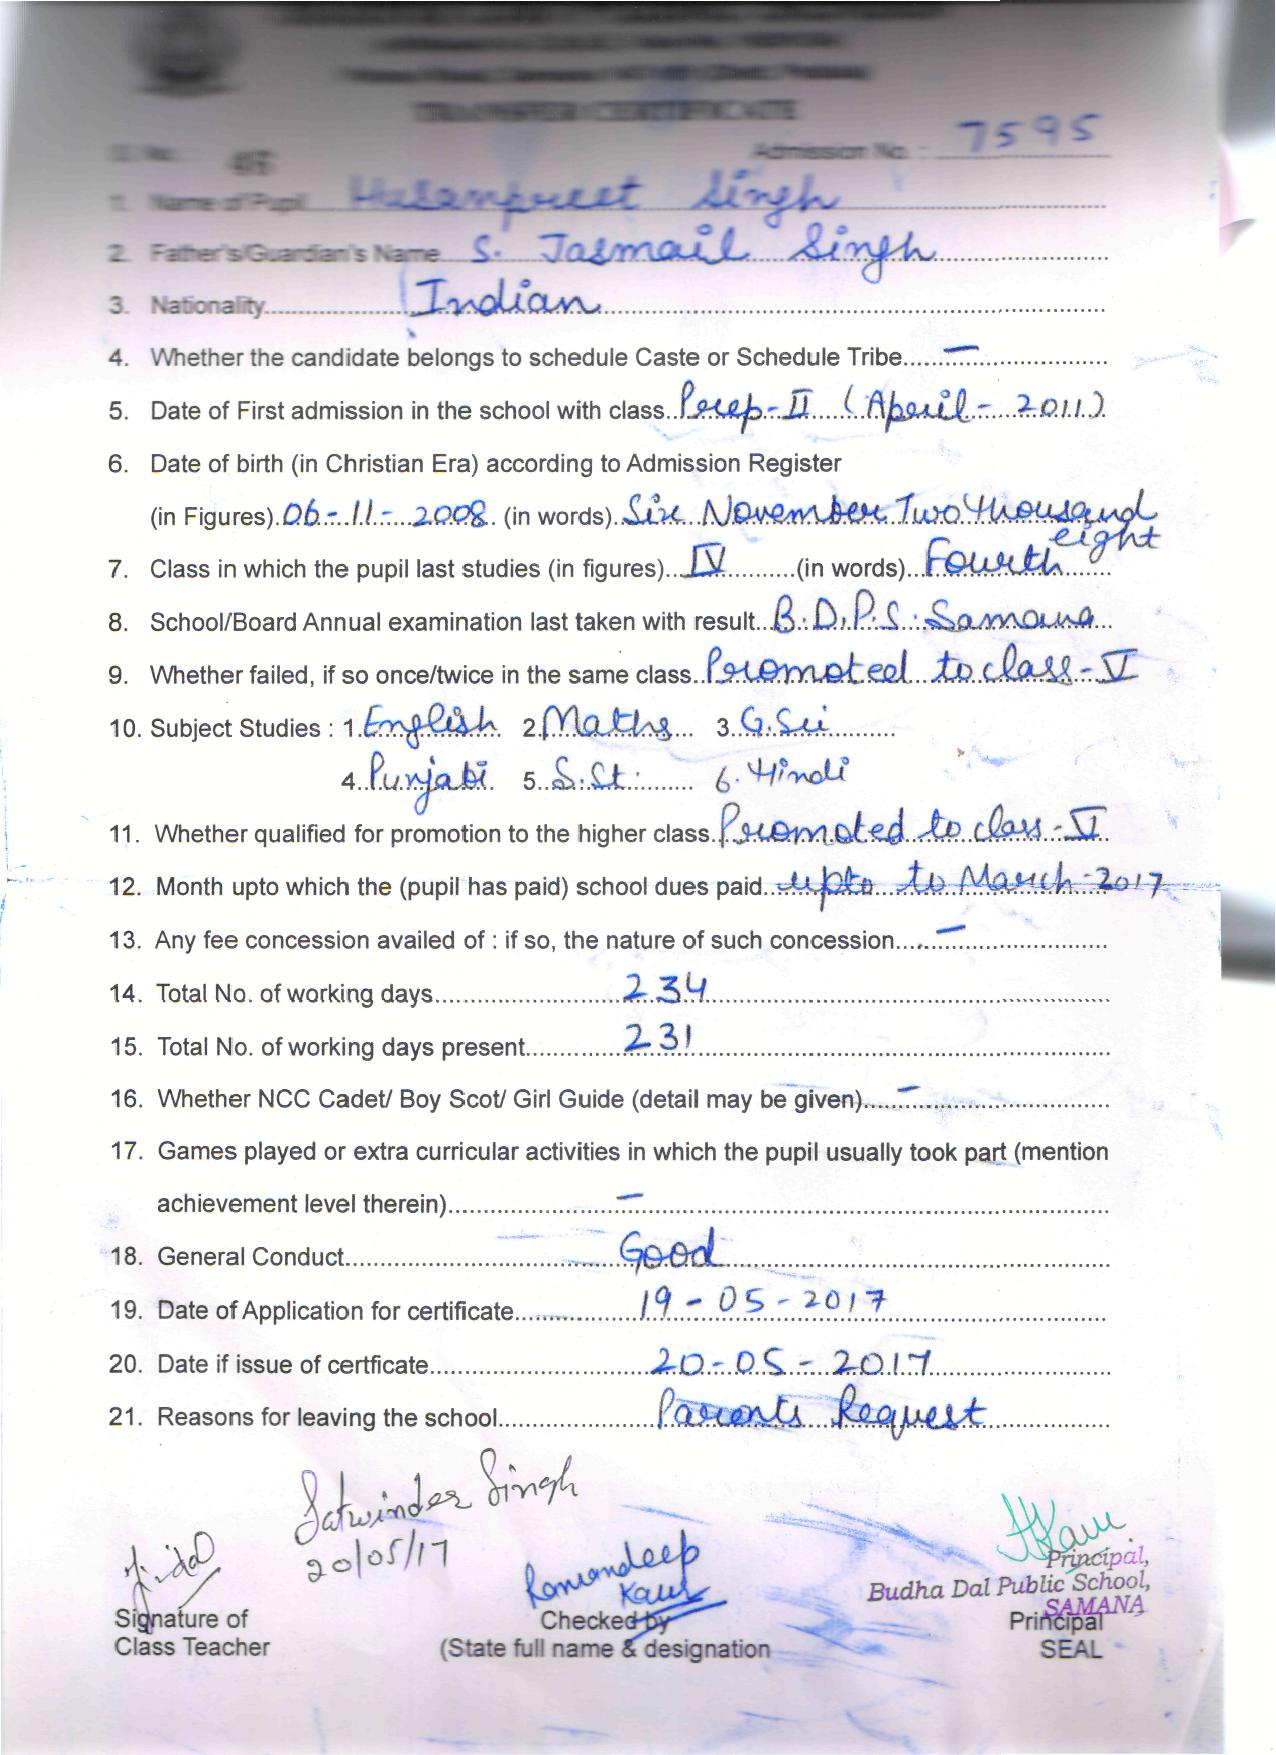 TRANSFER CERTIFICATE
Admission No. : 7595
1. Name of Pupil Singh
2. Father's/Guardian's Name S. Jasmail Singh
3. Nationality Indian
4. Whether the candidate belongs to schedule Caste or Schedule Tribe –
5. Date of First admission in the school with class Prep-II (April - 2011)
6. Date of birth (in Christian Era) according to Admission Register
(in Figures) 06-11-2008 (in words) Six November Two thousand
eight
7. Class in which the pupil last studies (in figures) IV (in words) Fourth
8. School/Board Annual examination last taken with result B.D.P.S. Samana
9. Whether failed, if so once/twice in the same class Promoted to class-V
10. Subject Studies : 1. English 2. Maths 3. G.Sci
4. Punjabi 5. S.St. 6. Hindi
11. Whether qualified for promotion to the higher class Promoted to class-V
12. Month upto which the (pupil has paid) school dues paid upto to March-2017
13. Any fee concession availed of : if so, the nature of such concession –
14. Total No. of working days 234
15. Total No. of working days present 231
16. Whether NCC Cadet/ Boy Scot/ Girl Guide (detail may be given) –
17. Games played or extra curricular activities in which the pupil usually took part (mention
achievement level therein) –
18. General Conduct Good
19. Date of Application for certificate 19-05-2017
20. Date if issue of certficate 20-05-2017
21. Reasons for leaving the school Parents Request
Satwinder Singh
20/05/17
Ramandeep
Kaur
Kaur
Principal,
Budha Dal Public School,
SAMANA
Signature of
Class Teacher
Checked by
(State full name & designation
Principal
SEAL